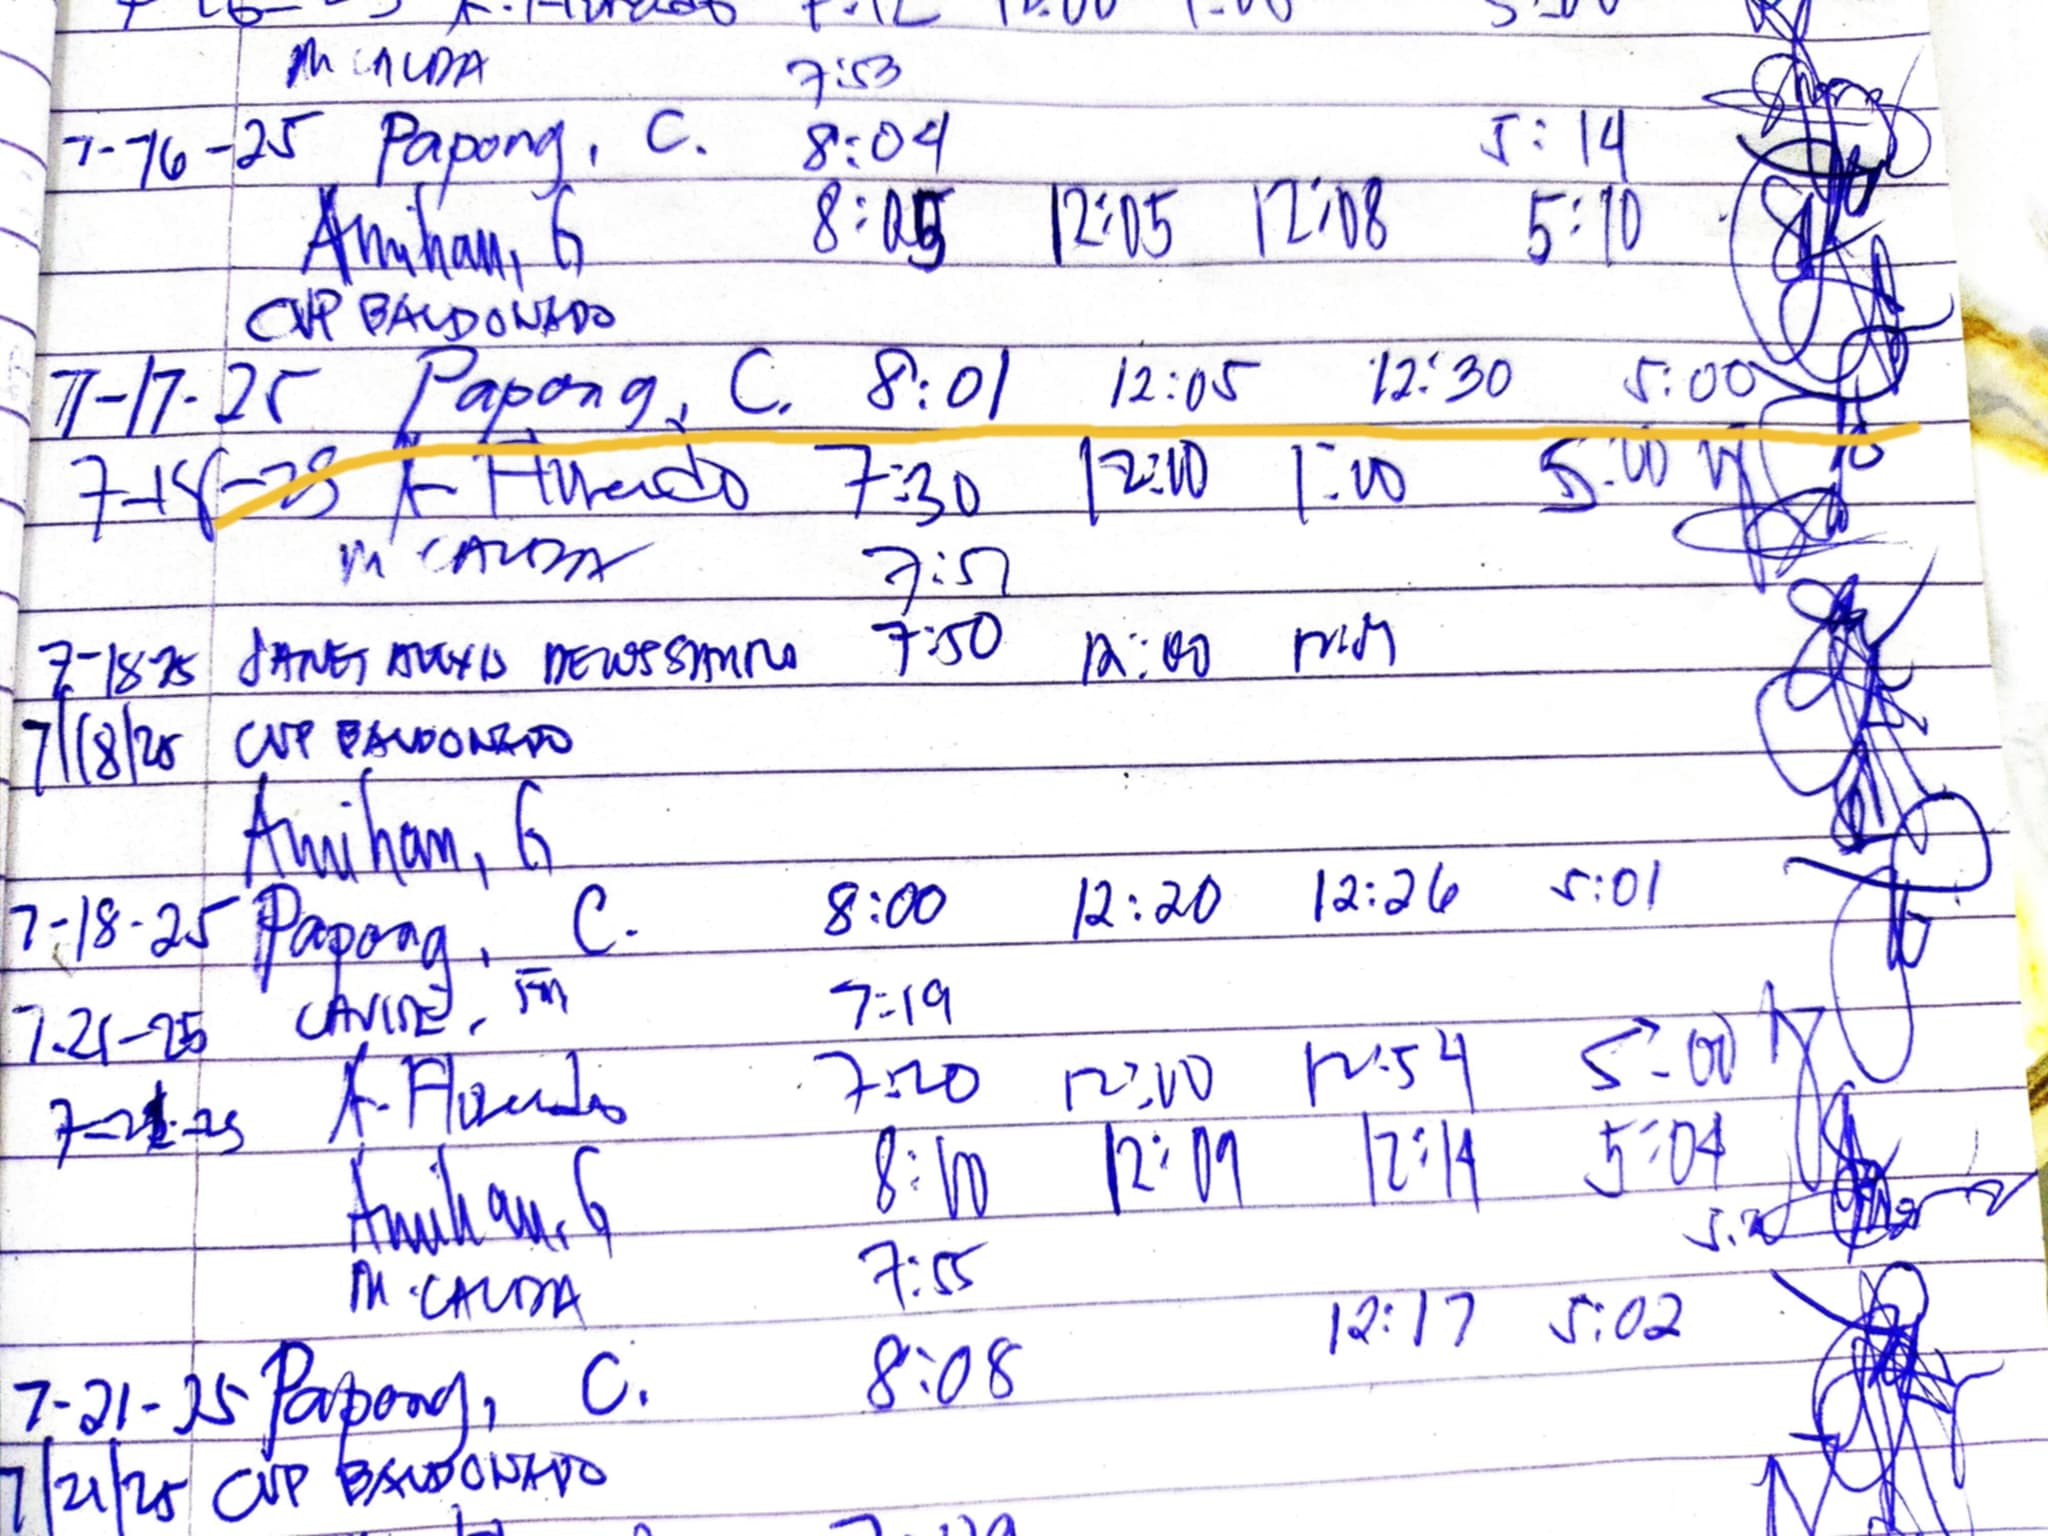 M CALDA 7:53
7-16-25 Papong, C. 8:04 5:14
Amihan, G 8:05 12:05 12:08 5:10
CVP BALDONADO
7-17-25 Papong, C. 8:01 12:05 12:30 5:00
7-18-25 A. 7:30 12:00 1:00 5:00
M CALDA 7:57
7-18-25 JANET 7:50 12:00
7/18/25 CVP BALDONADO
Amihan, G
7-18-25 Papong, C. 8:00 12:20 12:26 5:01
7-21-25 7:19
7-21-25 A. 7:20 12:00 12:54 5:00
Amihan, G 8:10 12:09 12:14 5:04
M. CALDA 7:55
7-21-25 Papong, C. 8:08 12:17 5:02
7/21/25 CVP BALDONADO